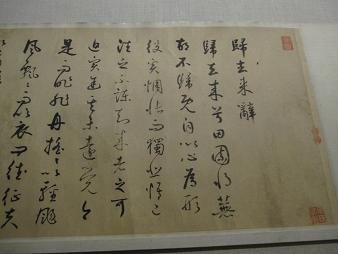 歸去來辭
歸去來兮田園將蕪
胡不歸既自以心為形
役奚惆悵而獨悲悟已
往之不諫知來者之可
追實迷途其未遠覺今
是而昨非舟搖搖以輕颺
風飄飄而吹衣問征夫